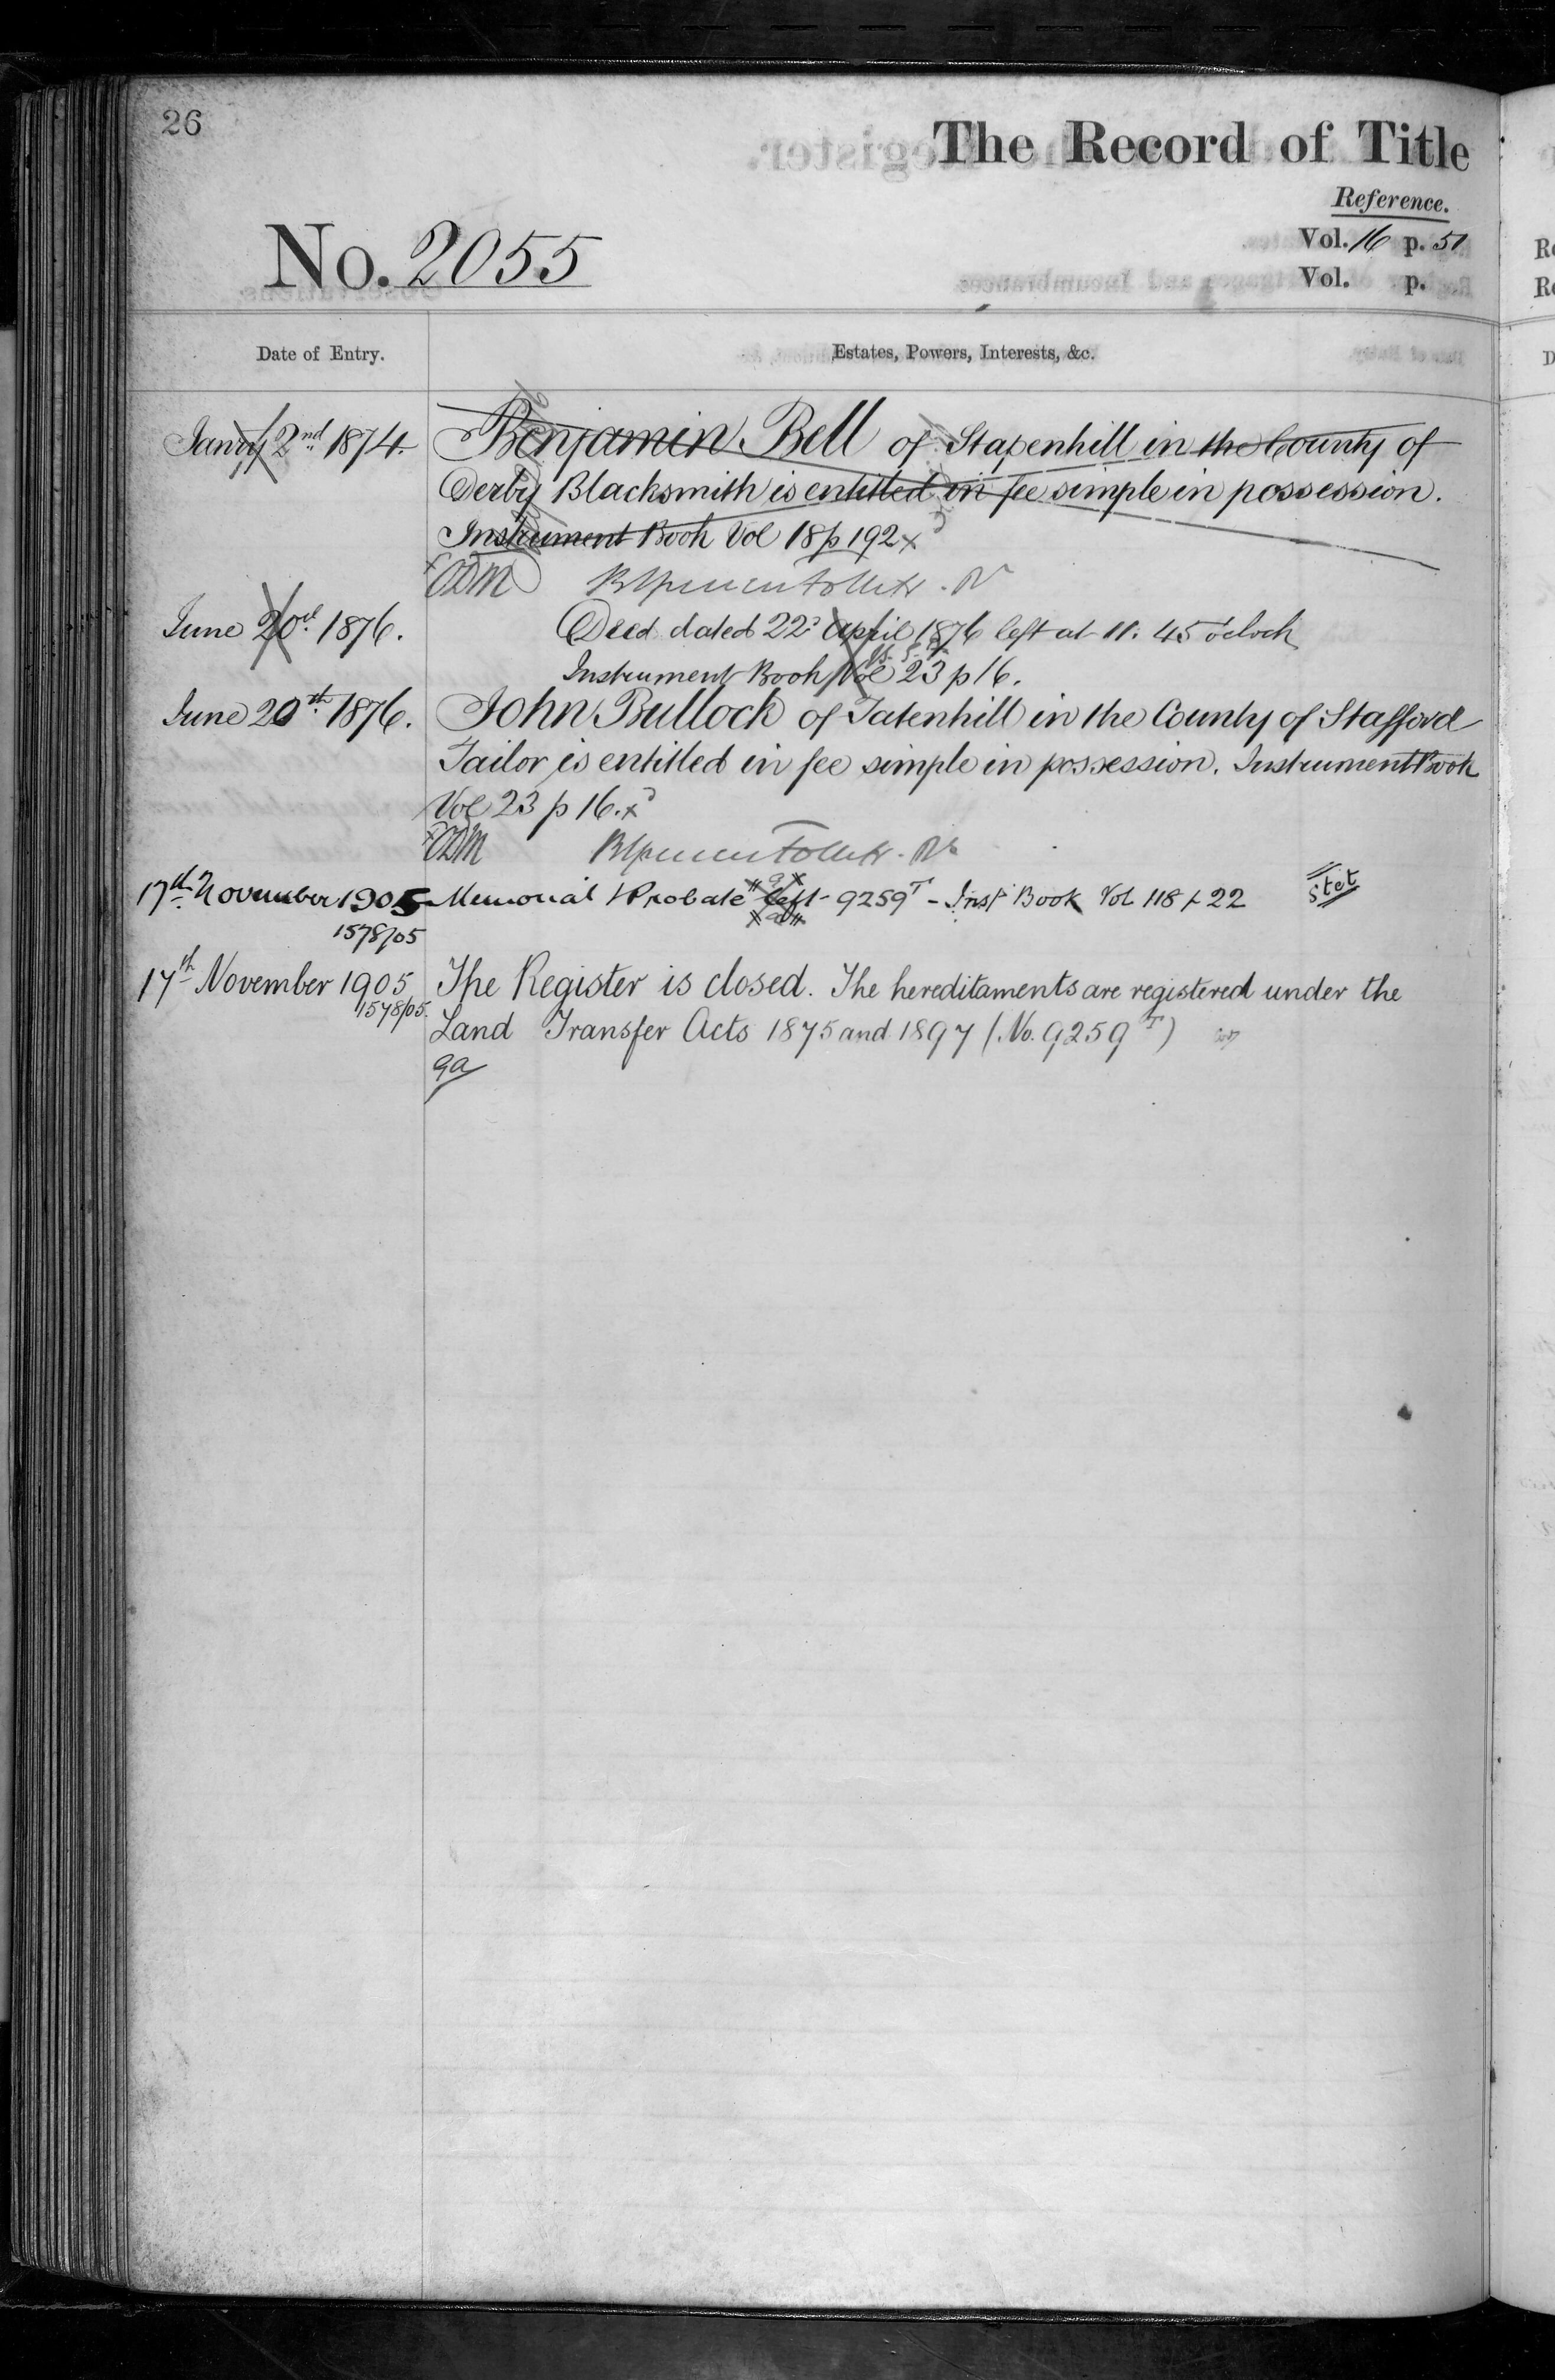 26
The Record of Title
Reference.
No. 2055
Vol. 16 p. 51
Vol. p.
Date of Entry.
Estates, Powers, Interests, &c.
Jan'y 2nd 1874.
Benjamin Bell of Stapenhill in the County of
Derby Blacksmith is entitled in fee simple in possession.
Instrument Book Vol 18 p 192 x
June 20th 1876.
Deed dated 22d April 1876 left at 11. 45 o'clock
Instrument Book Vol 23 p 16.
June 20th 1876.
John Bullock of Tatenhill in the County of Stafford
Tailor is entitled in fee simple in possession. Instrument Book
Vol 23 p 16. x
17th November 1905
Memorial & Probate left - 9259T - Inst Book Vol 118 p 22
Stet
1578/05
17th November 1905
The Register is closed. The hereditaments are registered under the
1578/05.
Land Transfer Acts 1875 and 1897 (No. 9259T)